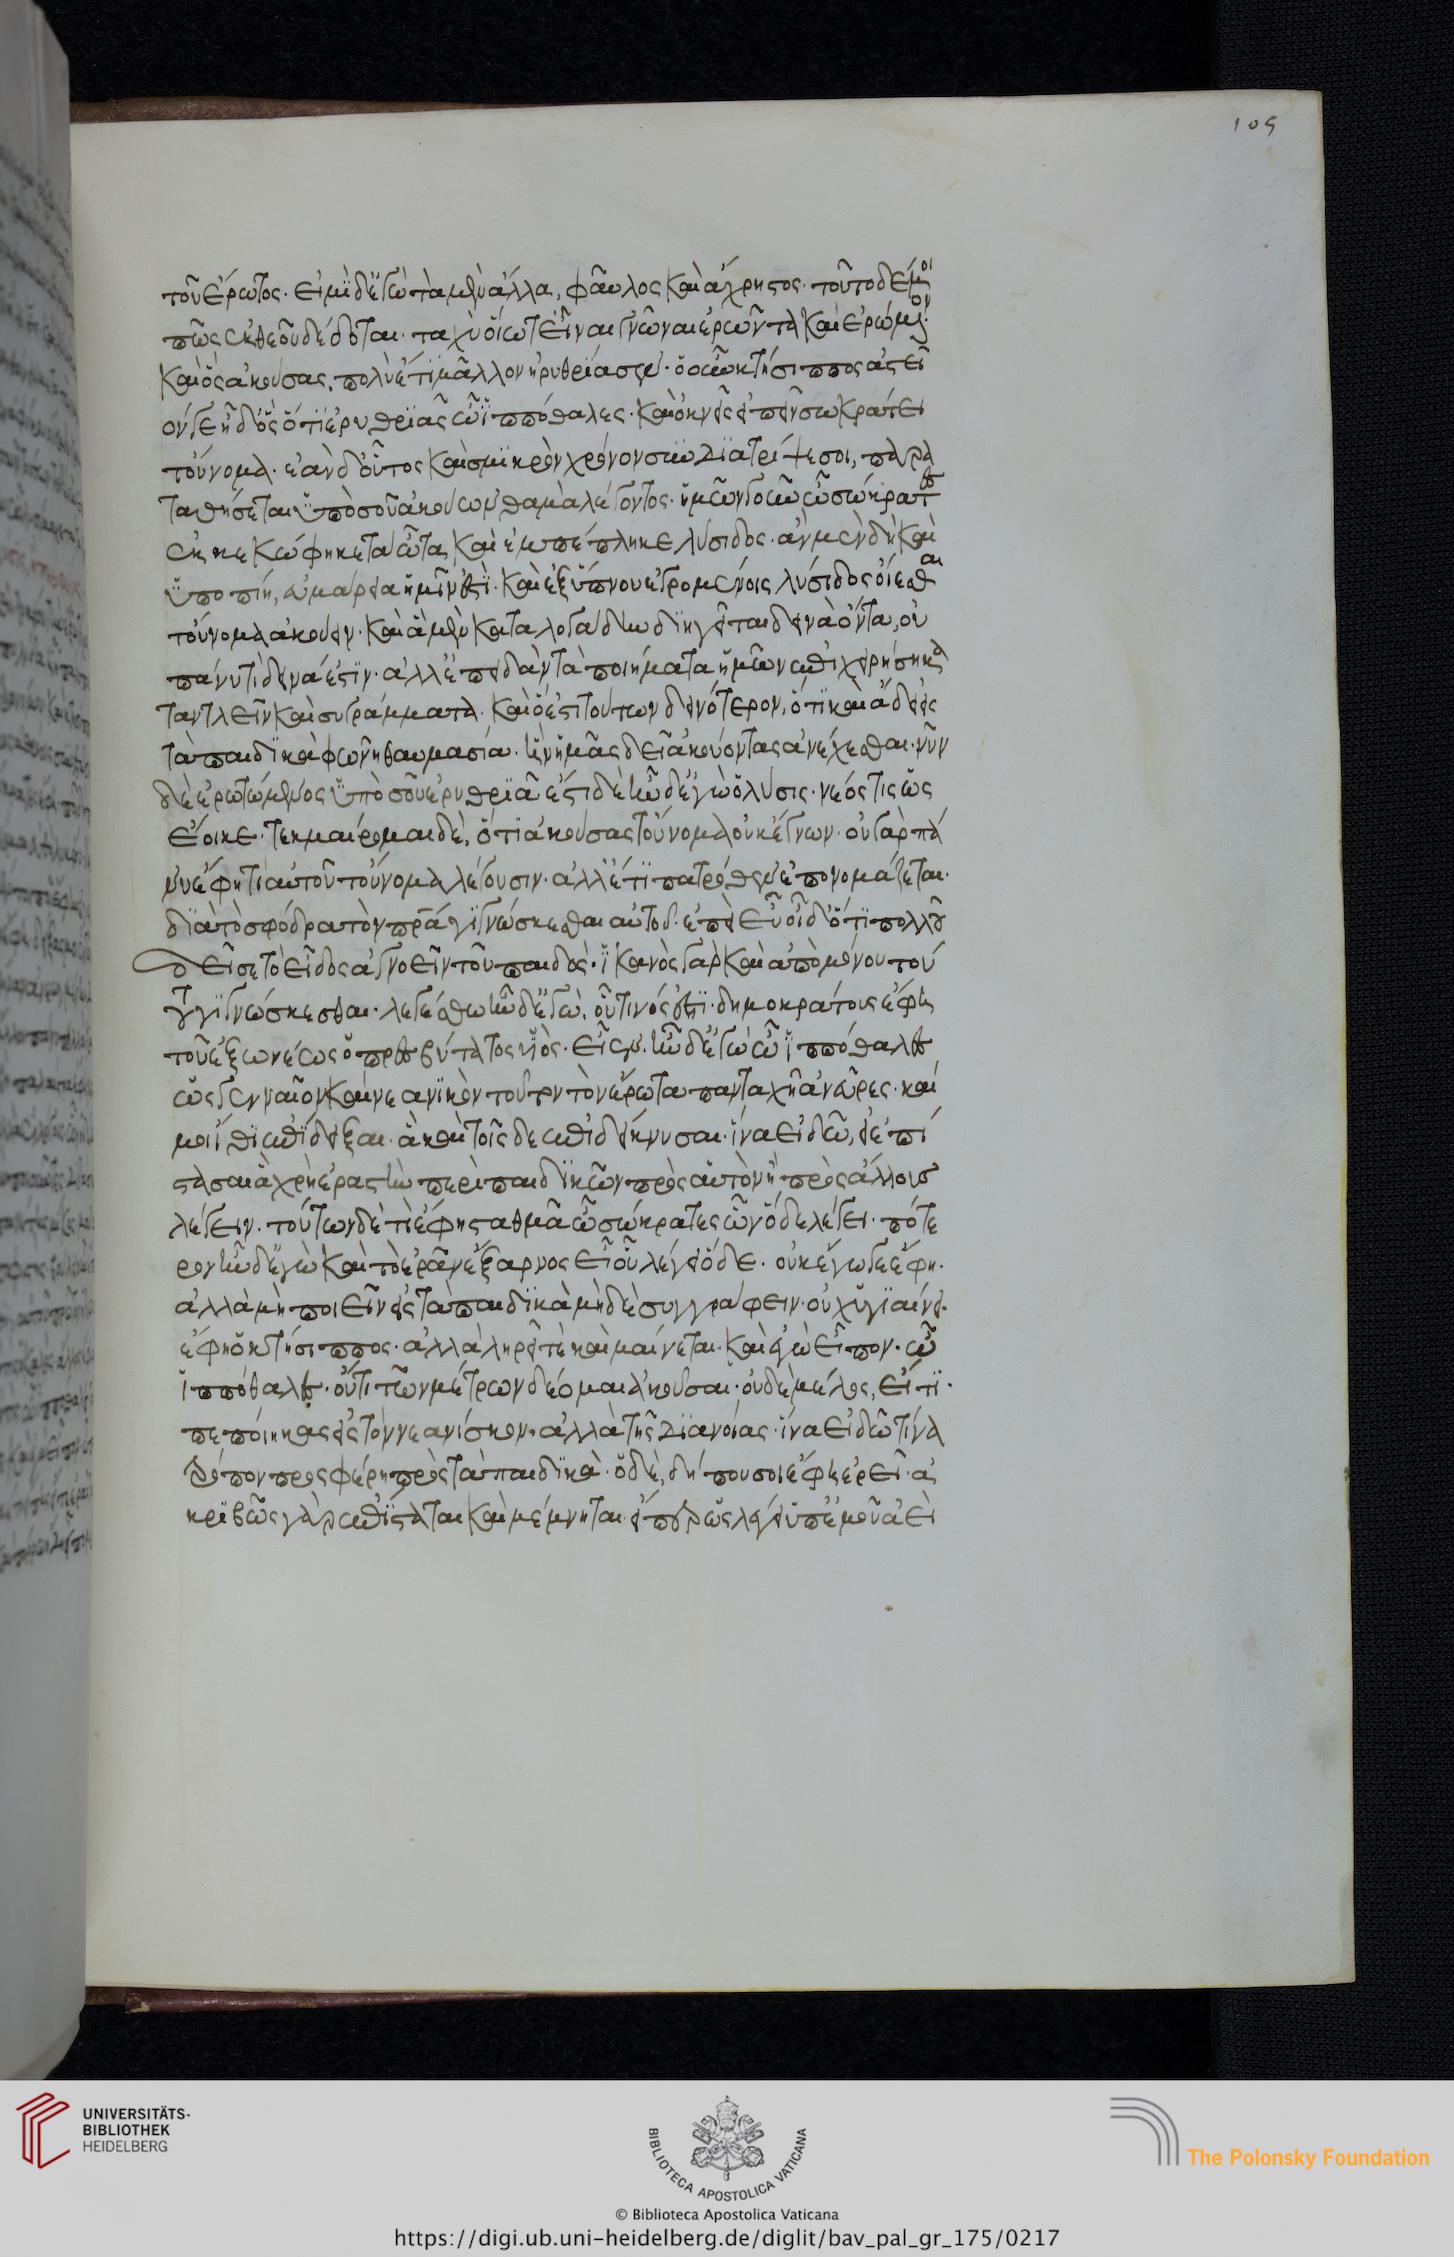 109
τοῦ ἔρωτος. εἰμὶ δ' ἐγὼ τὰ μὲν ἄλλα, φαῦλος καὶ ἄχρηστος. τοῦτο δέ μοι
πῶς ἐκ θεοῦ δέδοται. ταχὺ οἵῳ τ' εἶναι γνῶναι ἐρῶντα καὶ ἐρώμενον.
καὶ ὃς ἀκούσας, πολὺ ἔτι μᾶλλον ἠρυθρίασεν. ὁ οὖν κτήσιππος ἀστεῖ
όν γε ἦ δ' ὃς ὅτι ἐρυθριᾷς ὦ ἱππόθαλες. καὶ ὀκνεῖς εἰπεῖν σωκράτει
τοὔνομα. ἐὰν δ' οὗτος καὶ σμικρὸν χρόνον συνδιατρίψει σοι, παρα
ταθήσεται ὑπὸ σοῦ ἀκούων θαμὰ λέγοντος. ἡμῶν γοῦν ὦ σώκρατες
ἐκκεκώφηκε τὰ ὦτα, καὶ ἐμπέπληκε λύσιδος. ἂν μὲν δὴ καὶ
ὑποπίῃ, εὐμάρεια ἡμῖν ἐστὶ. καὶ ἐξ ὕπνου ἐγρομένοις λύσιδος οἴεσθαι
τοὔνομα ἀκούειν. καὶ ἃ μὲν καταλογάδην διηγεῖται δεινὰ ὄντα, οὐ
πάνυ τι δεινά ἐστιν. ἀλλ' ἐπειδὰν τὰ ποιήματα ἡμῶν ἐπιχειρήσῃ κα
ταντλεῖν καὶ συγράμματα. καὶ ὅ ἐστι τούτων δεινότερον, ὅτι καὶ ᾄδει εἰς
τὰ παιδικὰ φωνῇ θαυμασίᾳ. ἣν ἡμᾶς δεῖ ἀκούοντας ἀνέχεσθαι. νῦν
δὲ ἐρωτώμενος ὑπὸ σοῦ ἐρυθριᾷ ἔστι δὲ ἦν δ' ἐγὼ ὁ λύσις. νέος τις ὡς
ἔοικε. τεκμαίρομαι δέ, ὅτι ἀκούσας τοὔνομα οὐκ ἔγνων. οὐ γὰρ πά
νυ ἔφη τι αὐτοῦ τοὔνομα λέγουσιν. ἀλλ' ἔτι πατρόθεν ἐπονομάζεται.
διὰ τὸ σφόδρα τὸν πρα γιγνώσκεσθαι αὐτοῦ. ἐπεὶ εὖ οἶδ' ὅτι πολλοῦ
δεῖ σε τὸ εἶδος ἀγνοεῖν τοῦ παιδὸς. ἱκανὸς γὰρ καὶ ἀπὸ μόνου τού
του γιγνώσκεσθαι. λεγέσθω ἦν δ' ἐγὼ, οὗτινός ἐστι. δημοκράτους ἔφη
τοῦ ἐξωνέως ὁ πρεσβύτατος υἱὸς. εἶεν. ἦν δ' ἐγὼ ὦ ἱππόθαλες
ὡς γενναῖον καὶ νεανικὸν τοῦτον τὸν ἔρωτα πανταχῇ ἀνεῦρες. καί
μοι ἴθι ἐπίδειξαι. ἃ καὶ τοῖς δε ἐπιδείκνυσαι. ἵνα εἰδῶ, εἰ ἐπί
στασαι ἃ χρὴ ἐραστὴν περὶ παιδικῶν πρὸς αὐτὸν ἢ πρὸς ἄλλους
λέγειν. τούτων δὲ τι ἔφη σταθμᾷ ὦ σώκρατες ὧν ὅδε λέγει. πότε
ρον ἦν δ' ἐγὼ καὶ τὸ ἐρᾶν ἔξαρνος εἶ οὗ λέγει ὅδε. οὐκ ἔγωγε ἔφη.
ἀλλὰ μὴ ποιεῖν εἰς τὰ παιδικὰ μὴ δὲ συγγράφειν. οὐχ ὑγιαίνει.
ἔφη ὁ κτήσιππος. ἀλλὰ ληρεῖ τὲ καὶ μαίνεται. καὶ ἐγὼ εἶπον. ὦ
ἱππόθαλες. οὔτι τῶν μέτρων δέομαι ἀκοῦσαι. οὐδὲ μέλος, εἴ τι
πεποίηκας εἰς τὸν νεανίσκον. ἀλλὰ τῆς διανοίας. ἵνα εἰδῶ τίνα
τρόπον προσφέρῃ πρὸς τὰ παιδικὰ. ὅδε, δή που σοι ἔφη ἐρεῖ. ἀ
κριβῶς γὰρ ἐπίσταται καὶ μέμνηται. εἴπερ ὡς λέγει ὑπ' ἐμοῦ ἀεὶ
UNIVERSITÄTS-
BIBLIOTHEK
HEIDELBERG
BIBLIOTECA APOSTOLICA VATICANA
The Polonsky Foundation
© Biblioteca Apostolica Vaticana
https://digi.ub.uni-heidelberg.de/diglit/bav_pal_gr_175/0217